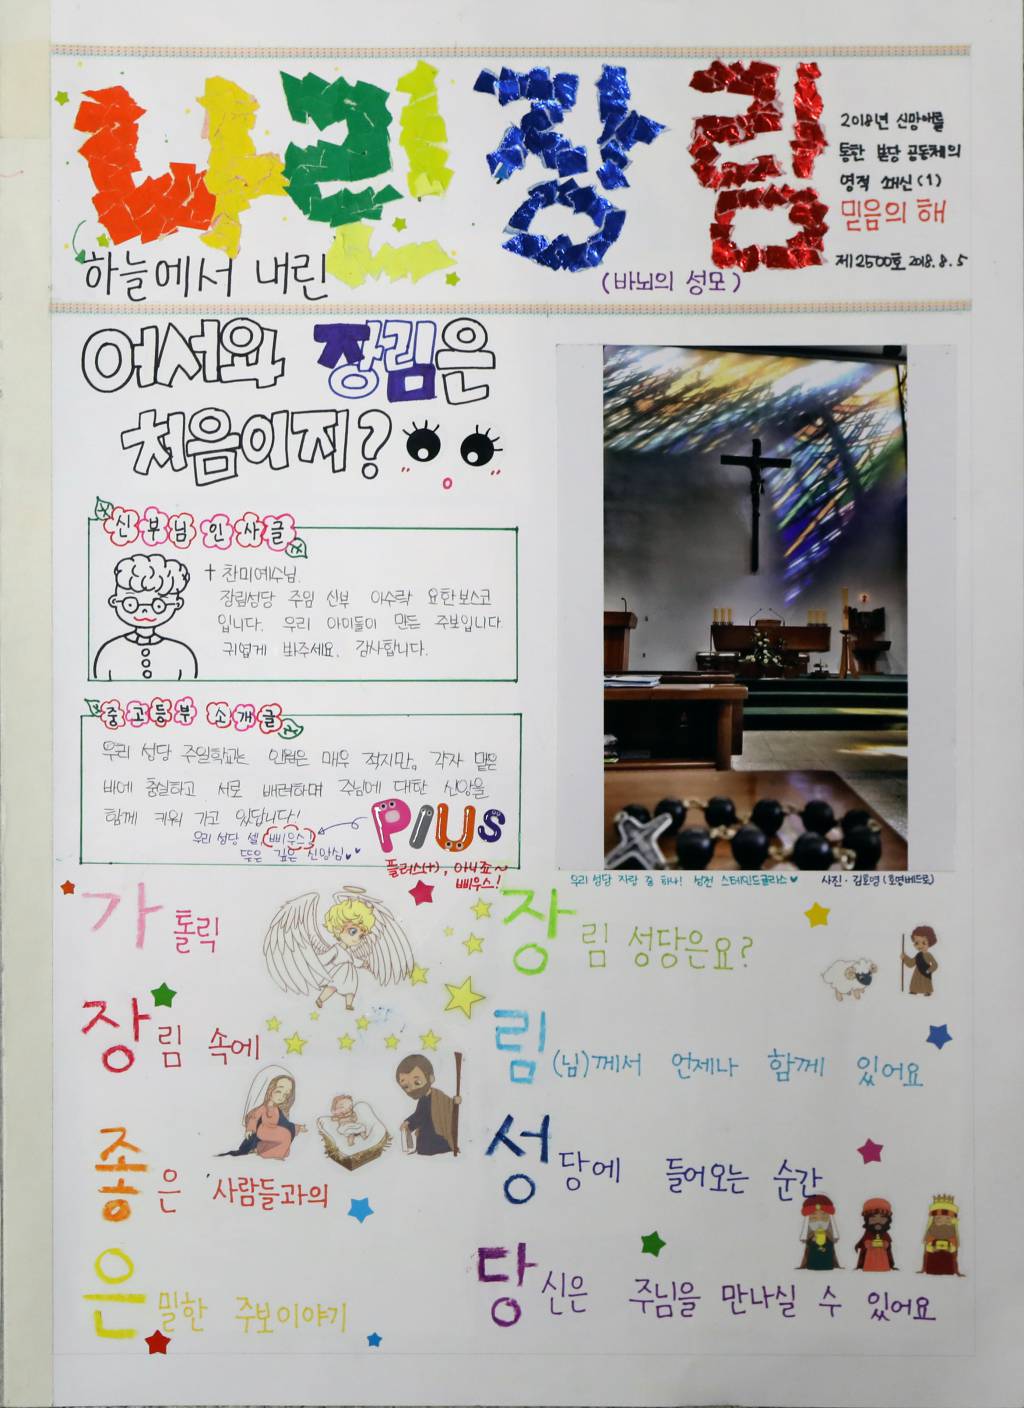 나린 장림
하늘에서 내린
(바뇌의 성모)
2018년 신망애를
통한 본당 공동체의
영적 쇄신(1)
믿음의 해
제2500호 2018. 8. 5
어서와 장림은
처음이지?
신부님 인사글
찬미예수님.
장림성당 주임 신부 이수락 요한보스코
입니다. 우리 아이들이 만든 주보입니다
귀엽게 봐주세요. 감사합니다.
중고등부 소개글
우리 성당 주일학교는 인원은 매우 적지만, 각자 맡은
바에 충실하고 서로 배려하며 주님에 대한 신앙을
함께 키워 가고 있답니다!
우리 성당 셀, 삐우스!
뜻은 깊은 신앙심
PIUS
플러스(+), 아니죠~
삐우스!
우리 성당 자랑 중 하나! 성전 스테인드글라스♥
사진 · 김호영(호연베드로)
가톨릭
장림 속에
좋은 사람들과의
은밀한 주보이야기
장림 성당은요?
림(님)께서 언제나 함께 있어요
성당에 들어오는 순간
당신은 주님을 만나실 수 있어요